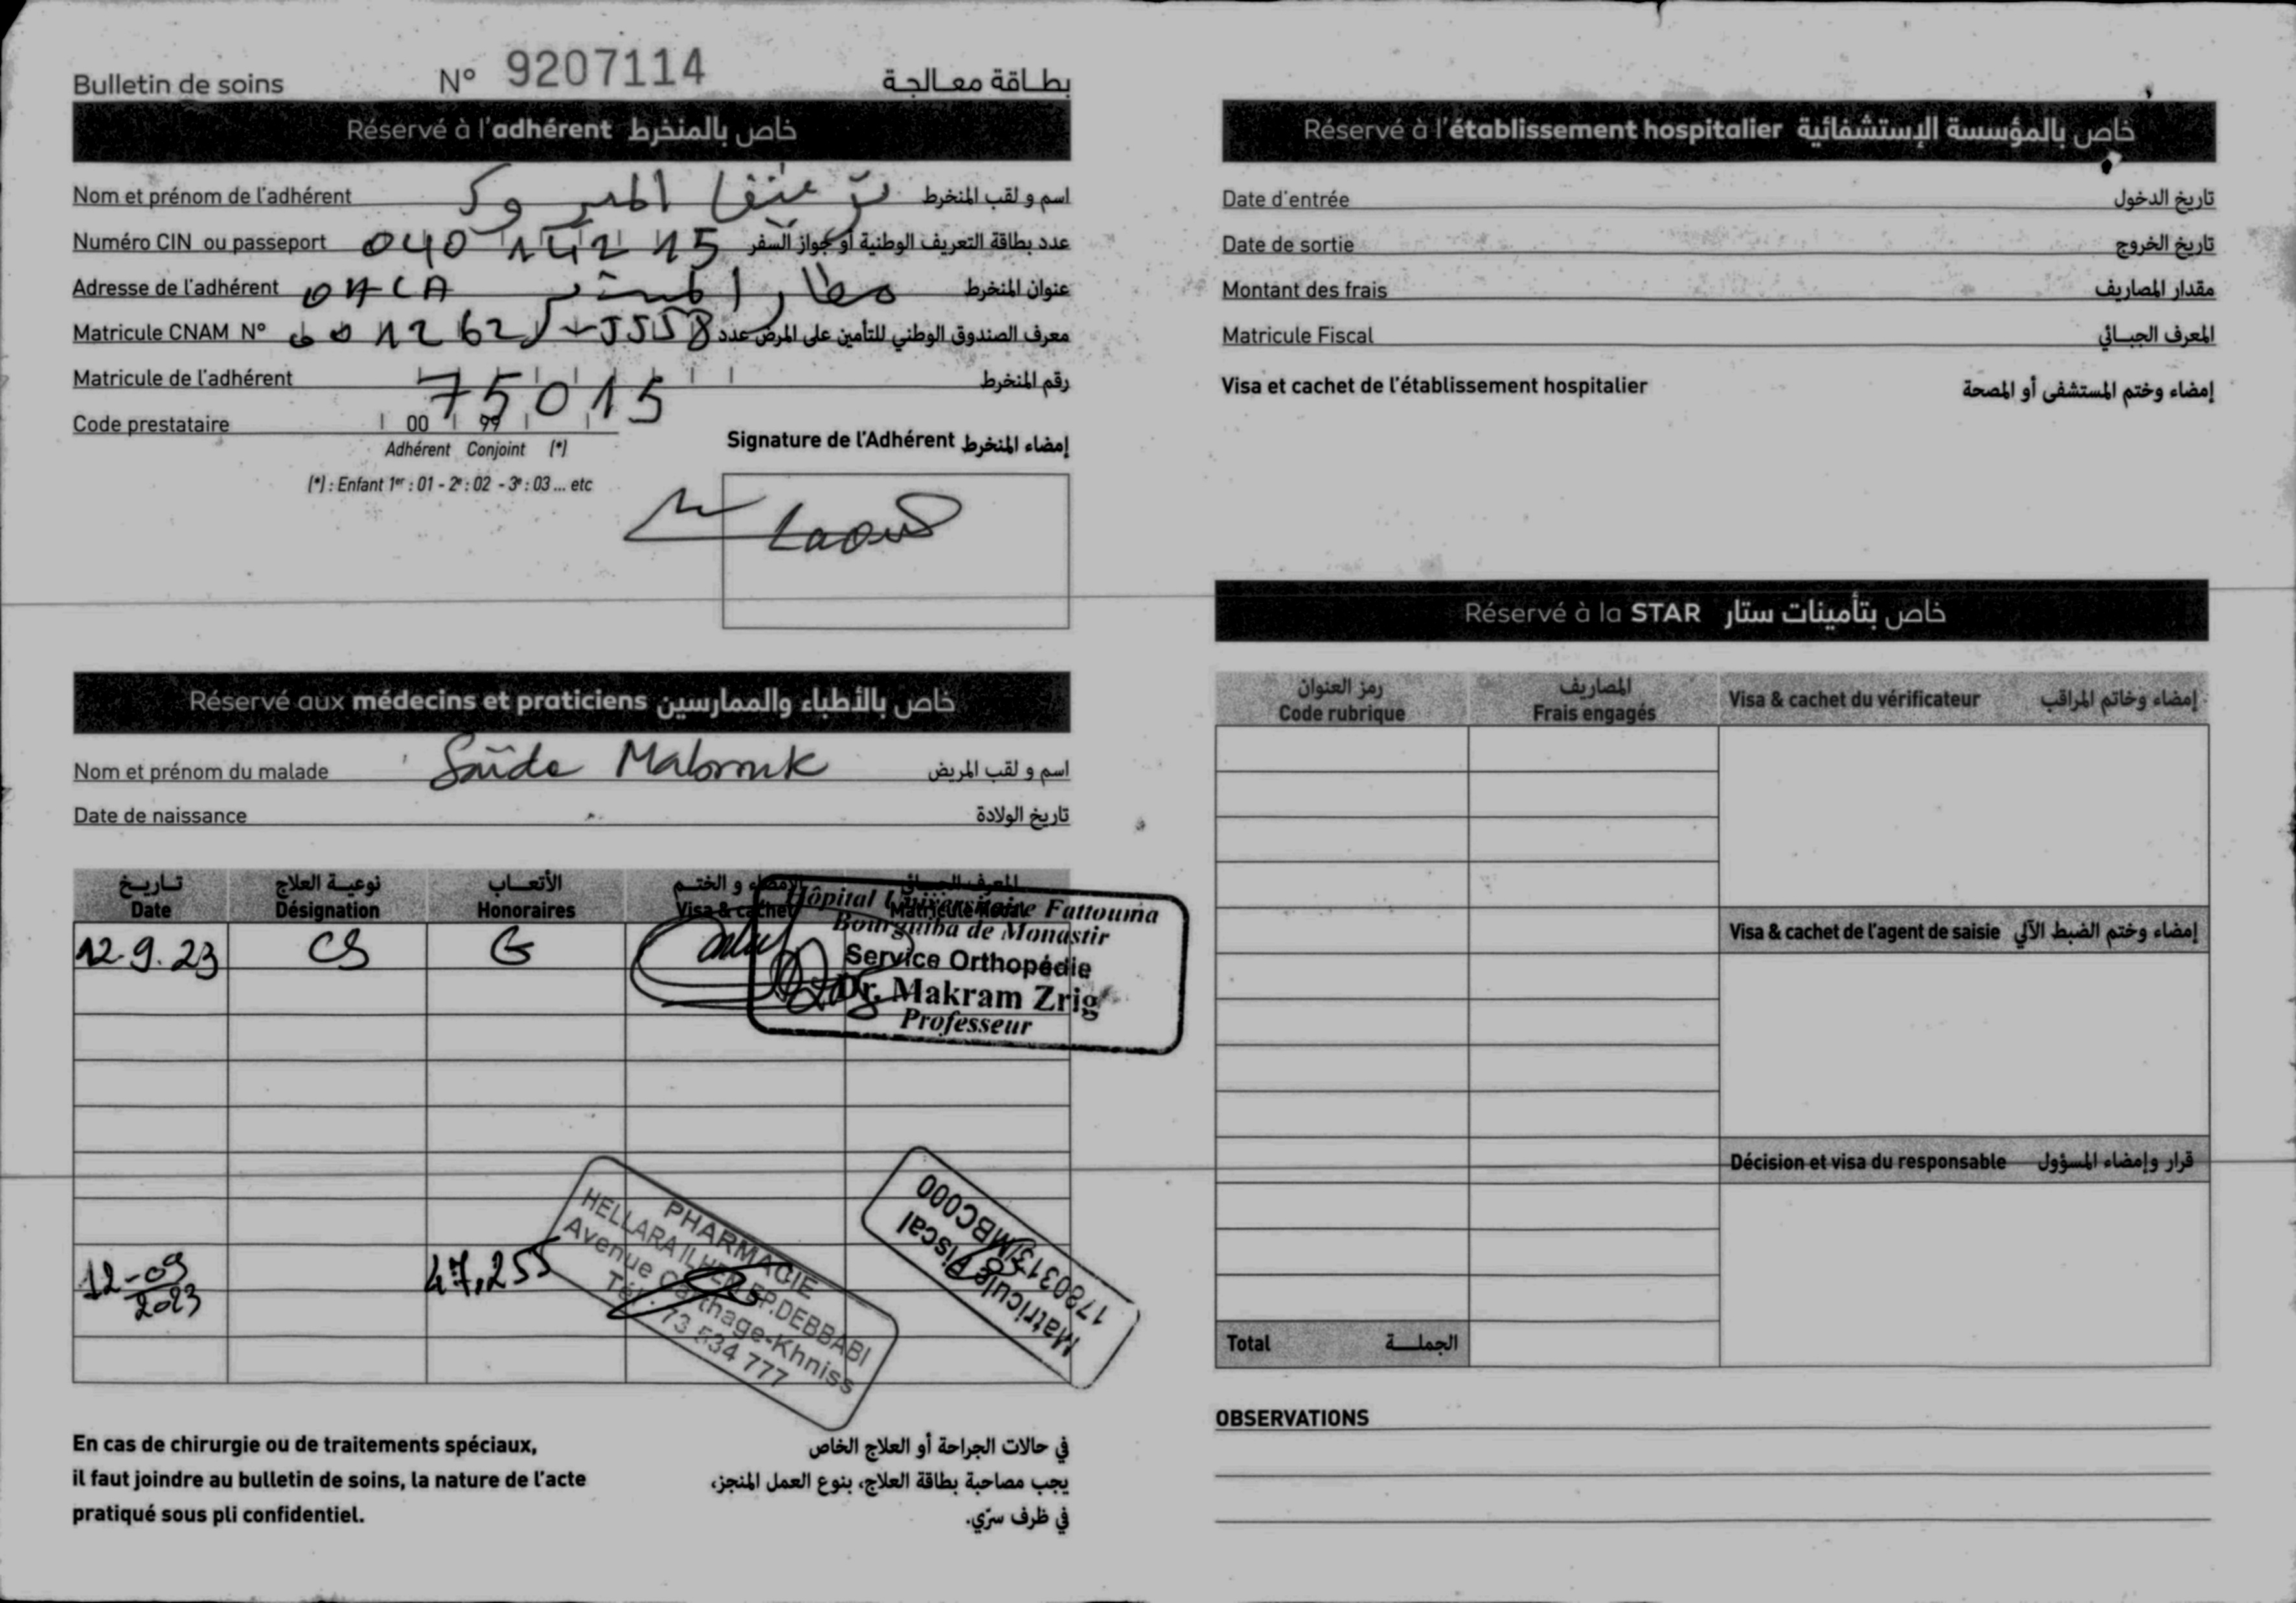 Bulletin de soins N° 9207114 بطاقة معالجة
Réservé à l'adhérent خاص بالمنخرط
Nom et prénom de l'adhérent المبروك اسم و لقب المنخرط
Numéro CIN ou passeport 040 142 15 عدد بطاقة التعريف الوطنية أو جواز السفر
Adresse de l'adhérent OACA مطار المنستير عنوان المنخرط
Matricule CNAM N° معرف الصندوق الوطني للتأمين على المرض عدد
Matricule de l'adhérent 75015 رقم المنخرط
Code prestataire 00 99
Adhérent Conjoint (*)
(*) : Enfant 1er : 01 - 2e : 02 - 3e : 03 ... etc
Signature de l'Adhérent إمضاء المنخرط
Réservé aux médecins et praticiens خاص بالأطباء والممارسين
Nom et prénom du malade Saïda Mabrouk اسم و لقب المريض
Date de naissance تاريخ الولادة
تاريخ نوعية العلاج الأتعاب الإمضاء و الختم المعرف الجبائي
Date Désignation Honoraires Visa & cachet Matricule fiscale
12.9.23 CS G
Hôpital Universitaire Fattouma
Bourguiba de Monastir
Service Orthopédie
Dr. Makram Zrig
Professeur
12-09 2023 47,255
PHARMACIE
HELLARA ILHEM EP.DEBBABI
Avenue Carthage-Khniss
Tél : 73 534 777
Matricule Fiscal
1780313/MBC000
En cas de chirurgie ou de traitements spéciaux,
il faut joindre au bulletin de soins, la nature de l'acte
pratiqué sous pli confidentiel.
في حالات الجراحة أو العلاج الخاص
يجب مصاحبة بطاقة العلاج، بنوع العمل المنجز،
في ظرف سرّي.
Réservé à l'établissement hospitalier خاص بالمؤسسة الإستشفائية
Date d'entrée تاريخ الدخول
Date de sortie تاريخ الخروج
Montant des frais مقدار المصاريف
Matricule Fiscal المعرف الجبائي
Visa et cachet de l'établissement hospitalier إمضاء وختم المستشفى أو المصحة
Réservé à la STAR خاص بتأمينات ستار
رمز العنوان المصاريف
Code rubrique Frais engagés Visa & cachet du vérificateur إمضاء وخاتم المراقب
Visa & cachet de l'agent de saisie إمضاء وختم الضبط الآلي
Décision et visa du responsable قرار وإمضاء المسؤول
Total الجملة
OBSERVATIONS